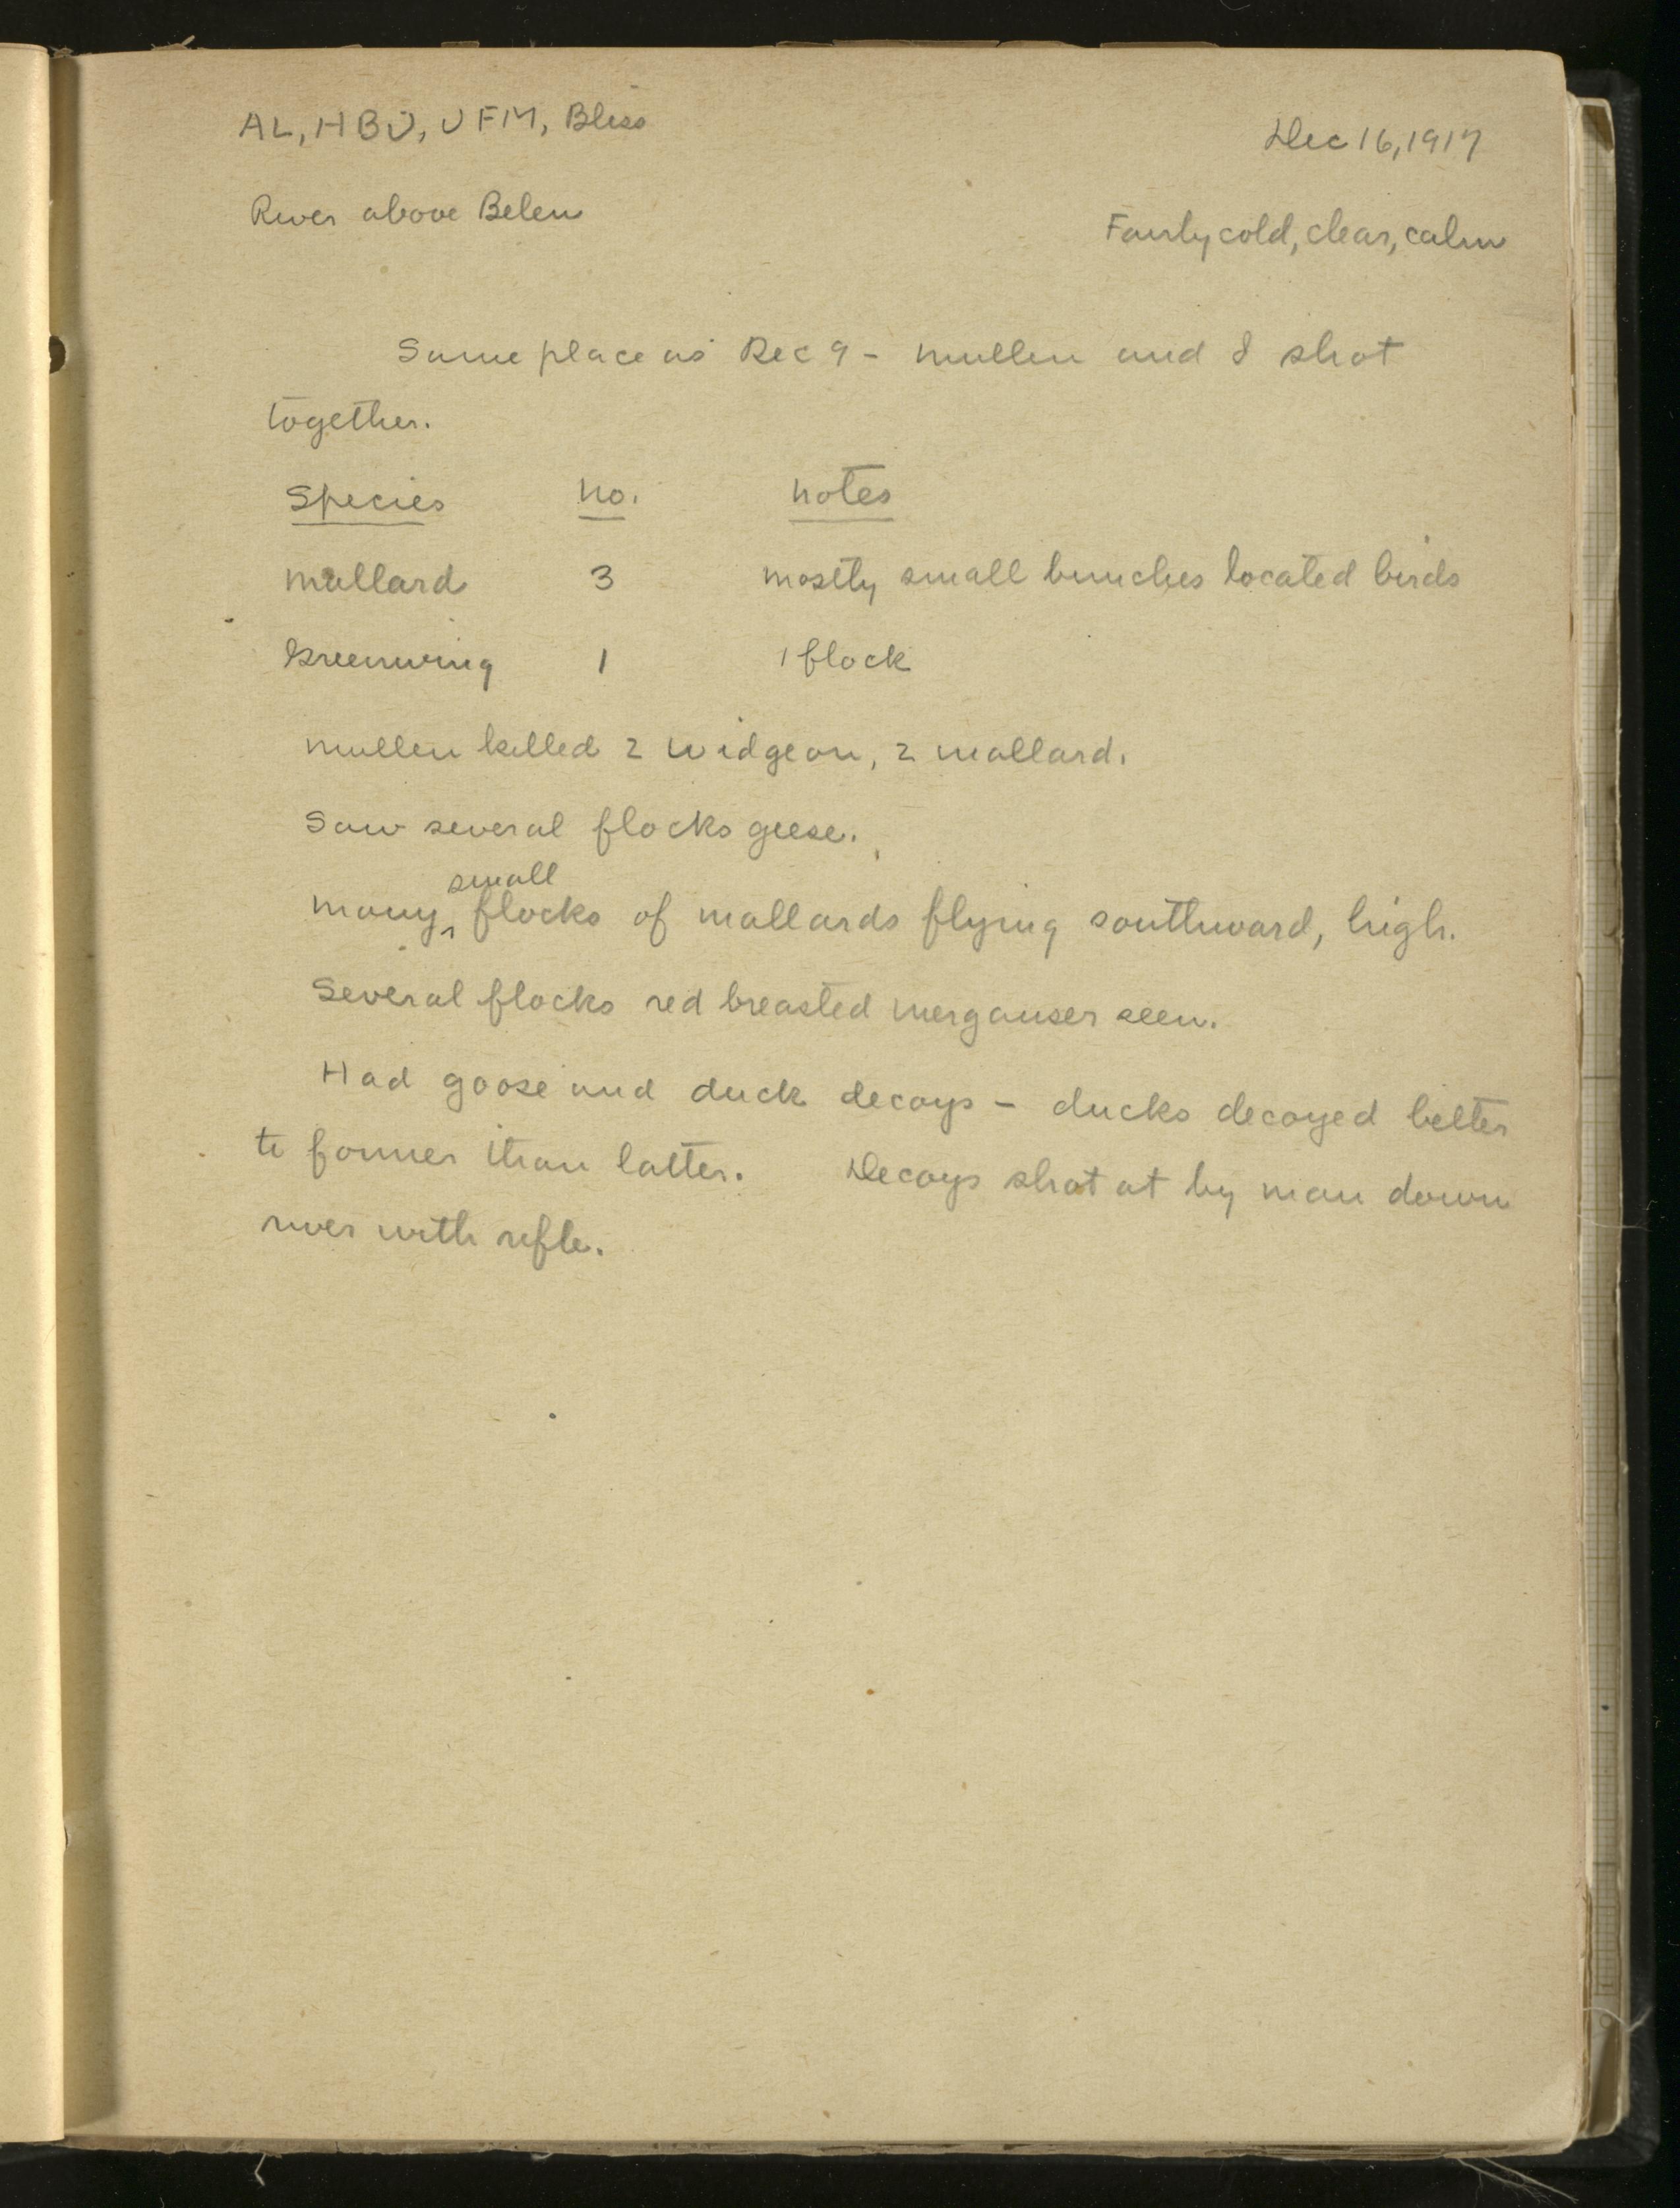 AL, HBJ, JFM, Bliss
Dec 16, 1917
River above Belen
Fairly cold, clear, calm
Same place as Dec 9 - Mullen and I shot
together.
Species no. notes
mallard 3 mostly small bunches located birds
Greenwing 1 1 flock
Mullen killed 2 widgeon, 2 mallard.
Saw several flocks geese.
small
many flocks of mallards flying southward, high.
Several flocks red breasted merganser seen.
Had goose and duck decoys - ducks decoyed better
to former than latter. Decoys shot at by man down
river with rifle.